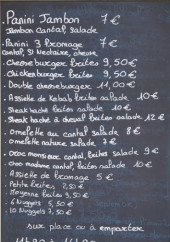 - Panini Jambon 7 €
Jambon Cantal, Salade
- Panini 3 fromage 7 €
Cantal, St Nectaire, chèvre
- Cheese burger frites 9,50€
- Chicken burger frites 9,50€
- Double cheese burger 11,00 €
- Assiette de Kebab frites salade 10€
- Steak haché frites salade 10€
- Steak haché à cheval frites salade 12€
- Omelette au cantal salade 8€
- Omelette nature salade 7€
- Croc monsieur cantal, frites salade 9€
- Croc madame cantal, frites salade 10€
- Assiette de fromage 5€
- Petite frites 2,50€
- Moyenne frites 3,50€
- 6 Nuggets 5,50€
- 10 Nuggets 7,50€
sur place ou à emporter